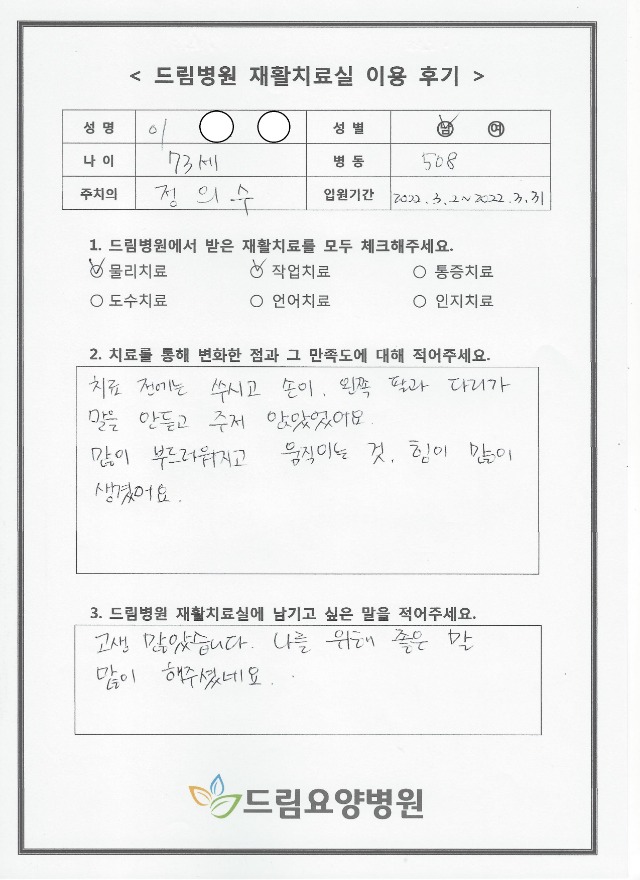 < 드림병원 재활치료실 이용 후기 >
성 명 이 성 별 남 여
나 이 73세 병 동 508
주치의 정의수 입원기간 2022.3.2~2022.3.31
1. 드림병원에서 받은 재활치료를 모두 체크해주세요.
물리치료 작업치료 통증치료
도수치료 언어치료 인지치료
2. 치료를 통해 변화한 점과 그 만족도에 대해 적어주세요.
치료 전에는 쑤시고 손이. 왼쪽 팔과 다리가
말을 안듣고 주저 앉았었어요.
많이 부드러워지고 움직이는 것, 힘이 많이
생겼어요.
3. 드림병원 재활치료실에 남기고 싶은 말을 적어주세요.
고생 많았습니다. 나를 위해 좋은 말
많이 해주셨네요.
드림요양병원